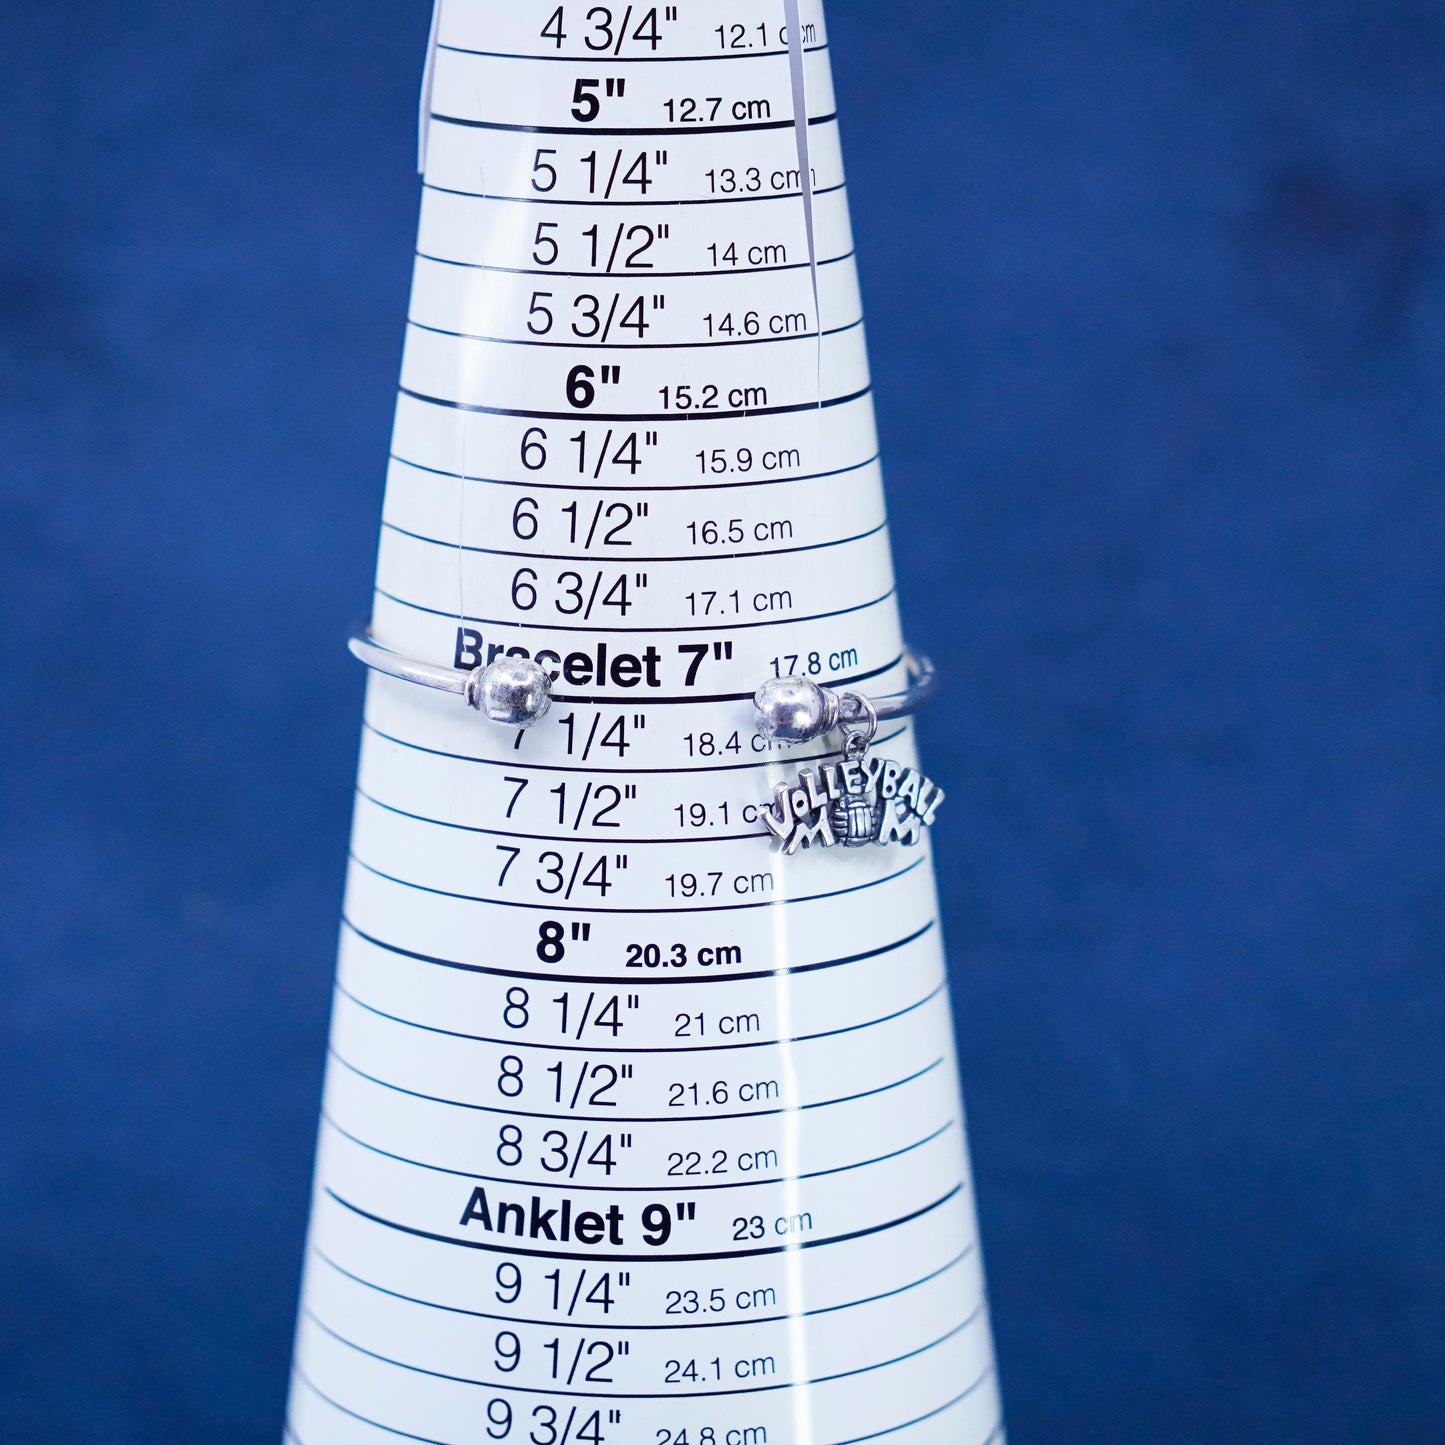 4 3/4" 12.1 cm
5" 12.7 cm
5 1/4" 13.3 cm
5 1/2" 14 cm
5 3/4" 14.6 cm
6" 15.2 cm
6 1/4" 15.9 cm
6 1/2" 16.5 cm
6 3/4" 17.1 cm
Bracelet 7" 17.8 cm
7 1/4" 18.4 cm
7 1/2" 19.1 cm
VOLLEYBALL
MOM
7 3/4" 19.7 cm
8" 20.3 cm
8 1/4" 21 cm
8 1/2" 21.6 cm
8 3/4" 22.2 cm
Anklet 9" 23 cm
9 1/4" 23.5 cm
9 1/2" 24.1 cm
9 3/4" 24.8 cm